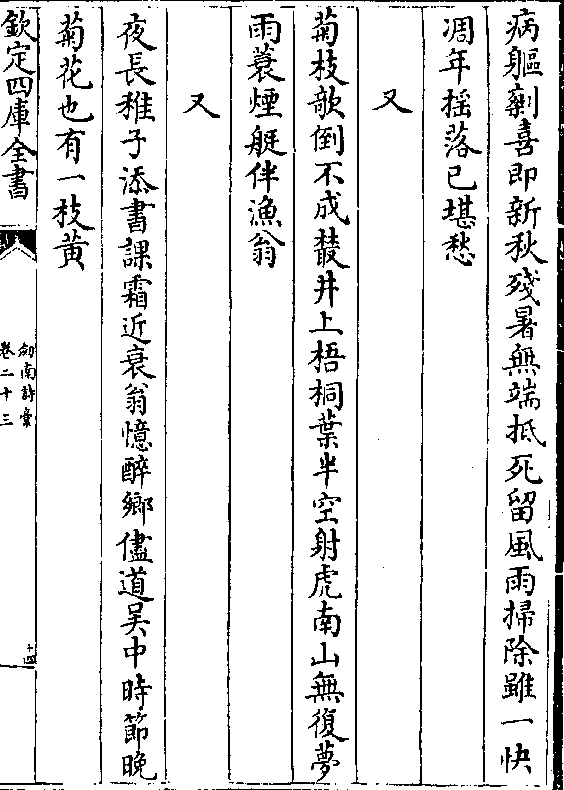 病軀剰喜即新秋殘暑無端抵死留風雨掃除雖一快
凋年揺落已堪愁
又
菊枝欹倒不成叢井上梧桐葉半空射虎南山無復夢
雨蓑煙艇伴漁翁
又
夜長稚子添書課霜近衰翁憶醉鄉儘道吴中時節晚
菊花也有一枝黄
欽定四庫全書
劔南詩稾
卷二十三
十四